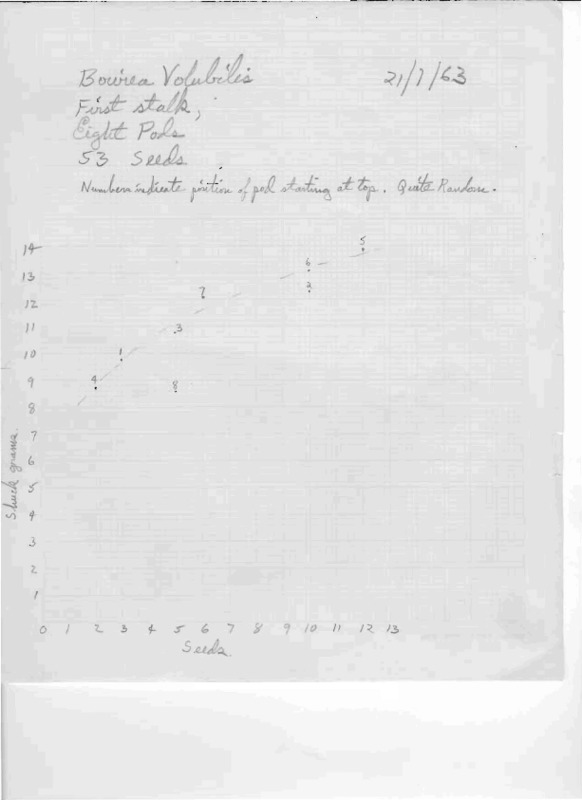 Bowiea Volubilis 21/7/63
First stalk,
Eight Pods
53 Seeds
Numbers indicate position of pod starting at top. Quite Random.
14
5
6
13
2
7
12
11
3
10
1
9
4
8
8
7
6
5
4
3
2
1
Shuck grams.
0 1 2 3 4 5 6 7 8 9 10 11 12 13
Seeds.